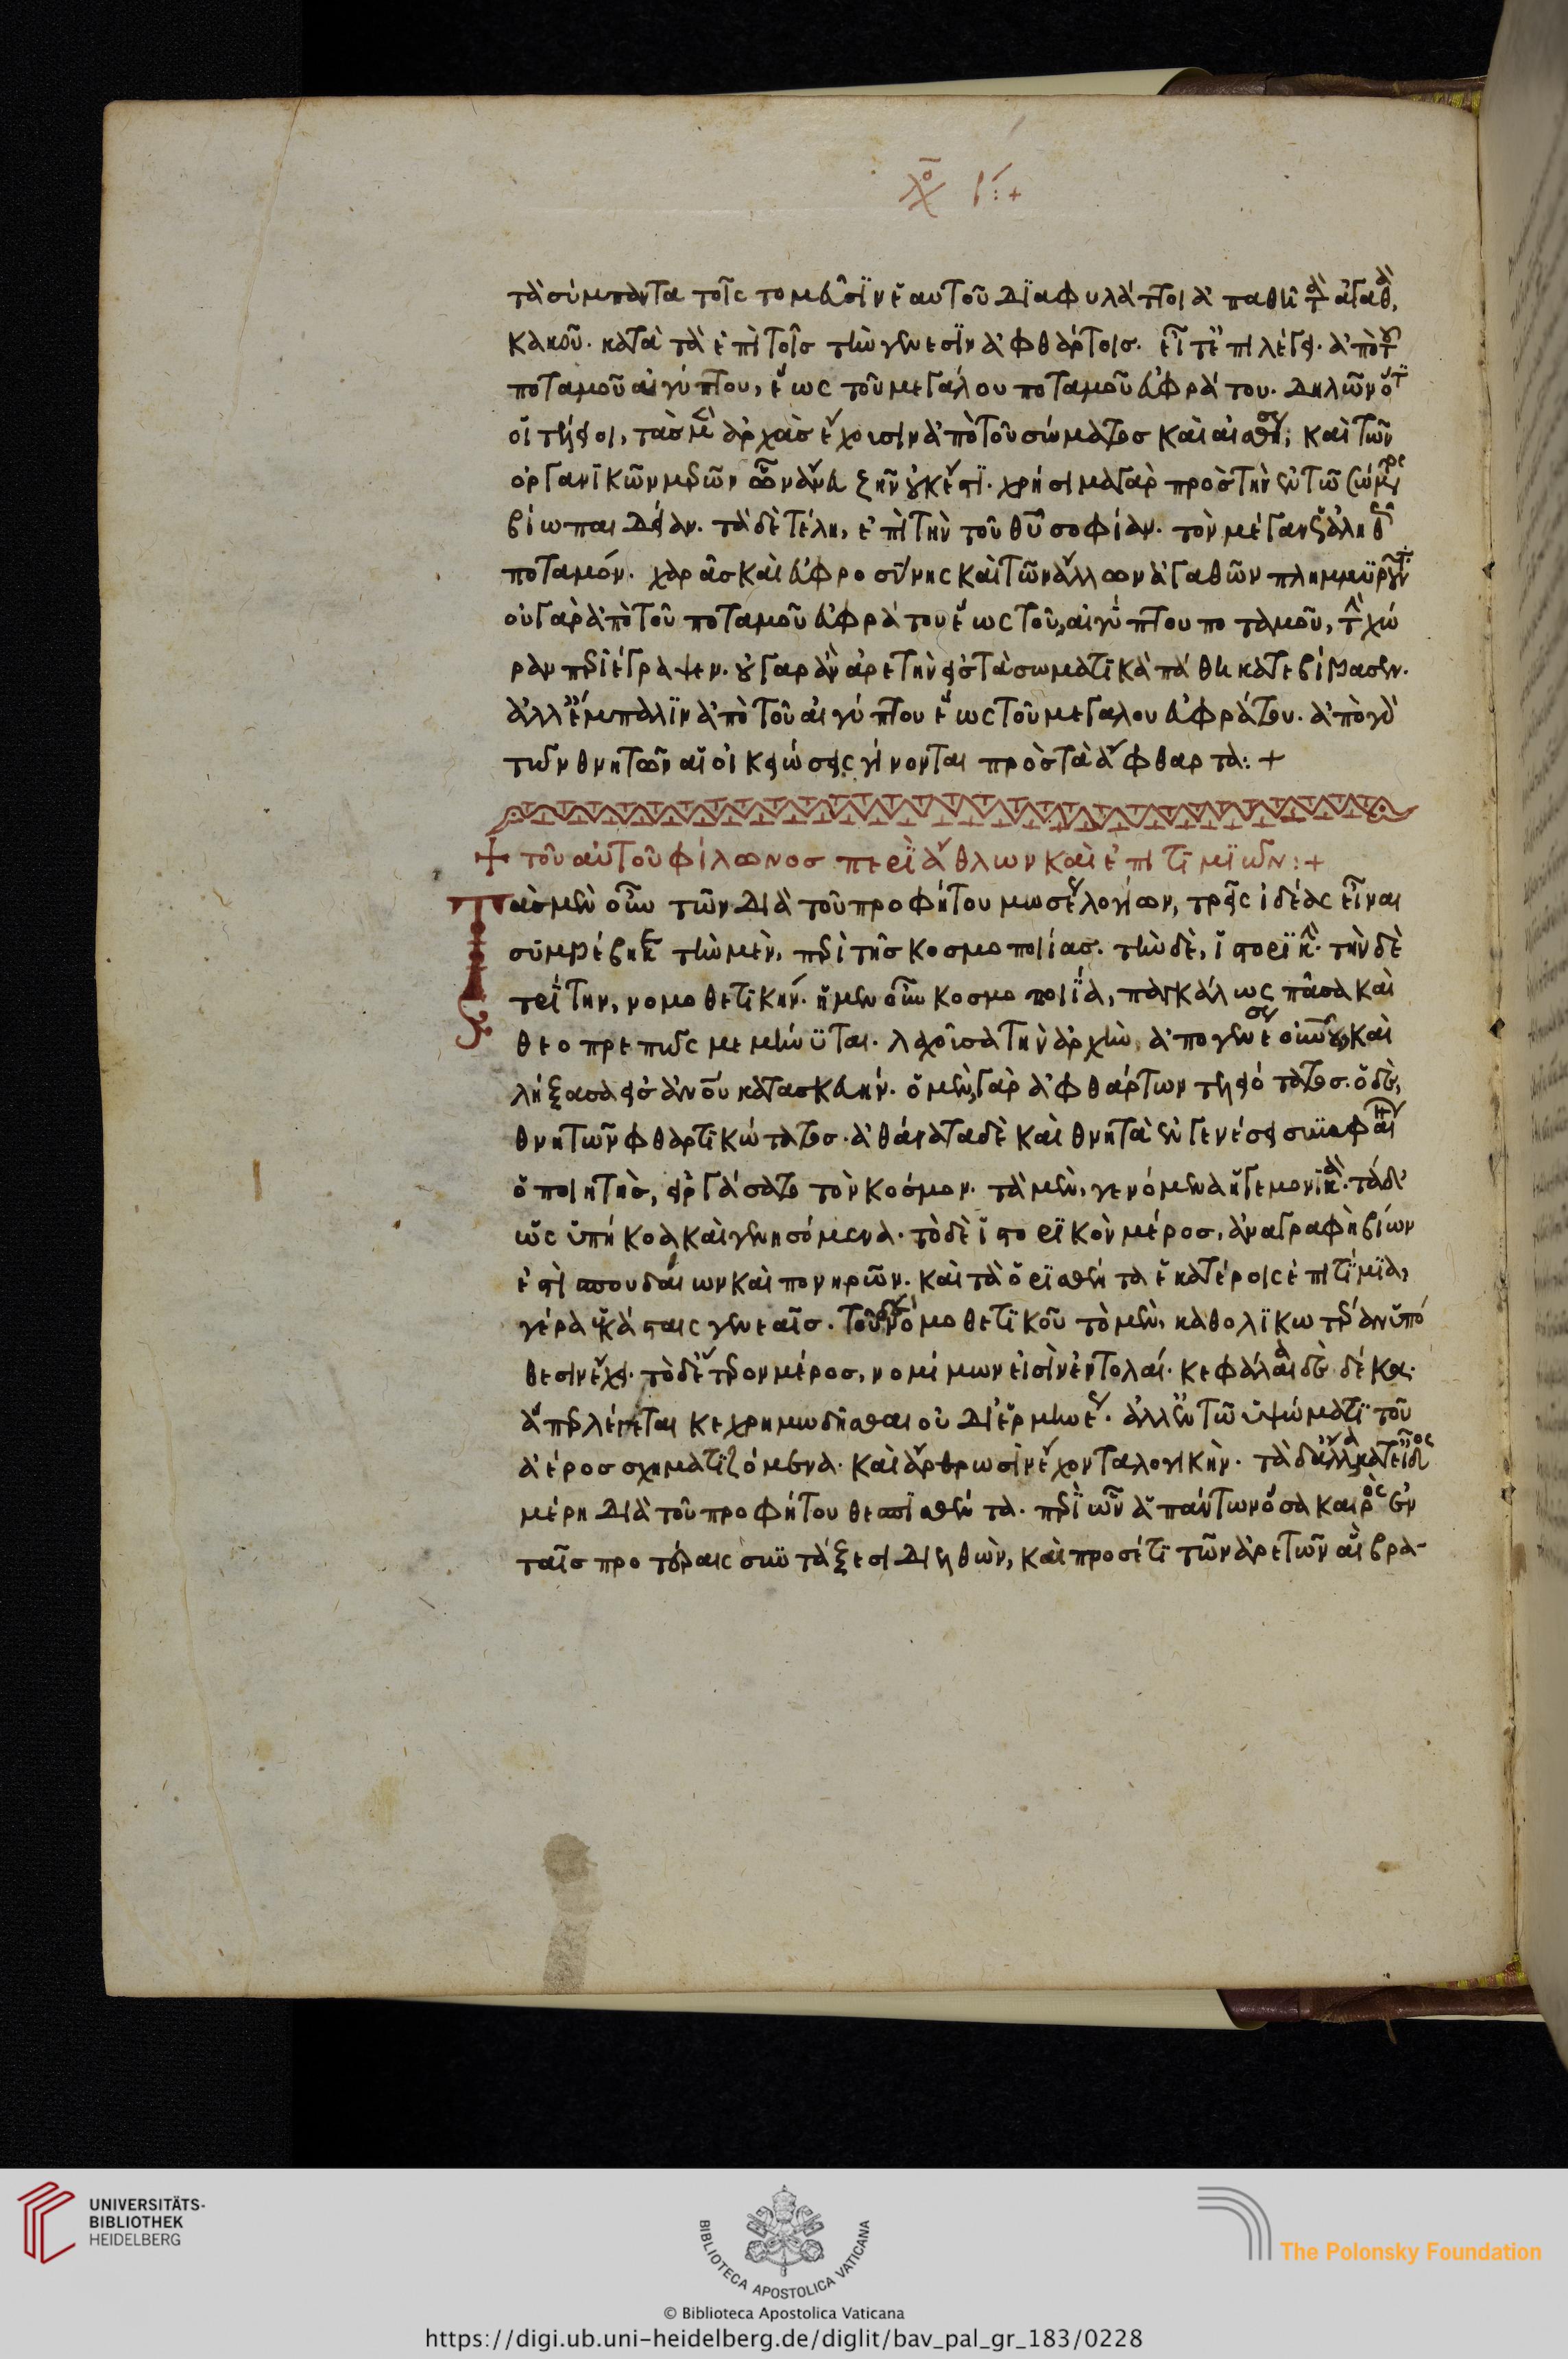 τὰ σύμπαντα τοῖς τομεῦσιν ἑαυτοῦ διαφυλάττοι ἀπαθῆ τὰ ἀγαθὰ
κακοῦ. κατὰ τὰ ἐπὶ τοῖς τὴν γένεσιν ἀφθάρτοις. εἶτ' ἐπιλέγει. ἀπὸ τοῦ
ποταμοῦ αἰγύπτου, ἕως τοῦ μεγάλου ποταμοῦ εὐφράτου. δηλῶν ὅτι
οἱ τέλειοι, τὰς μὲν ἀρχὰς ἔχουσιν ἀπὸ τοῦ σώματος καὶ αἰσθήσεως, καὶ τῶν
ὀργανικῶν μερῶν ὧν ἄνευ ζῆν οὐκ ἔστι. χρήσιμα γὰρ πρὸς τὴν ἐν τῷ
βίω παιδείαν. τὰ δὲ τέλη, ἐπὶ τὴν τοῦ θυ σοφίαν. τὸν μέγαν ὡς ἀληθῶς
ποταμόν. χαρᾶς καὶ εὐφροσύνης καὶ τῶν ἄλλων ἀγαθῶν πλημμυροῦντα
οὐ γὰρ ἀπὸ τοῦ ποταμοῦ εὐφράτου ἕως τοῦ αἰγύπτου ποταμοῦ, τὴν χώ
ραν περιέγραψεν. οὐ γὰρ ἂν ἀρετὴν εἰς τὰ σωματικὰ πάθη κατεβίβασεν.
ἀλλ' ἔμπαλιν ἀπὸ τοῦ αἰγύπτου ἕως τοῦ μεγάλου εὐφράτου. ἀπὸ γὰρ
τῶν θνητῶν αἱ οἰκειώσεις γίνονται πρὸς τὰ ἄφθαρτα:+
+ τοῦ αὐτοῦ φίλωνος περὶ ἄθλων καὶ ἐπιτιμίων:+
Τὰς μὲν οὖν τῶν διὰ τοῦ προφήτου μωσέως λογίων, τρεῖς ἰδέας εἶναι
συμβέβηκε τὴν μὲν, περὶ τῆς κοσμοποιίας. τὴν δὲ, ἱστορικήν. τὴν δὲ
τρίτην, νομοθετικήν. ἡ μὲν οὖν κοσμοποιία, παγκάλως πᾶσα καὶ
θεοπρεπῶς μεμήνυται. λαχοῦσα τὴν ἀρχὴν, ἀπὸ γενέσεως οὐνοῦ, καὶ
λήξασα εἰς ἀνου κατασκευήν. ὁ μὲν γὰρ ἀφθάρτων τελειότατος. ὁ δὲ,
θνητῶν φθαρτικώτατος. ἀθάνατα δὲ καὶ θνητὰ ἐν γενέσει
ὁ ποιητὴς, εἰργάσατο τὸν κόσμον. τὰ μὲν, γενόμενα ἡγεμονικὰ. τὰ δ'
ὡς ὑπήκοα καὶ γενησόμενα. τὸ δὲ ἱστορικὸν μέρος, ἀναγραφὴ βίων
ἐστὶ σπουδαίων καὶ πονηρῶν. καὶ τὰ ὁρισθέντα ἑκατέροις ἐπιτίμια,
γέρα ἑκάσταις γενεαῖς. τοῦ δὲ νομοθετικοῦ τὸ μὲν, καθολικωτέραν ὑπό
θεσιν ἔχει. τὸ δὲ ἕτερον μέρος, νομίμων εἰσὶν ἐντολαί. κεφάλαια δὲ δέκα.
ἅπερ λέγεται κεχρημωδῆσθαι οὐ δι' ἑρμηνέως. ἀλλ' ἐν τῷ ὑψώματι τοῦ
ἀέρος σχηματιζόμενα. καὶ ἄρθρωσιν ἔχοντα λογικήν. τὰ δ' ἄλλα κατ' εἶδος
μέρη διὰ τοῦ προφήτου θεσπισθέντα. περὶ ὧν ἁπάντων ὅσα καιρὸς ἐν
ταῖς προτέραις συντάξεσι διελθὼν, καὶ προσέτι τῶν ἀρετῶν
UNIVERSITÄTS-
BIBLIOTHEK
HEIDELBERG
BIBLIOTECA APOSTOLICA VATICANA
The Polonsky Foundation
© Biblioteca Apostolica Vaticana
https://digi.ub.uni-heidelberg.de/diglit/bav_pal_gr_183/0228